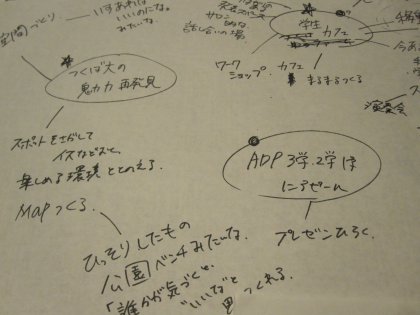 いすあれば
いいのにな。
みたいな
学生
カフェ
話し合いの場
ワーク
ショップ・カフェ
まるまるつくる
演奏会
つくば大の
魅力 再発見
スポットをさがして
イスなどおく。
楽しめる環境 ととのえる。
Mapつくる。
ADP 3学.2学は
プレゼンひらく。
ひっそりしたもの
公園ベンチみたいな。
「誰かが気づくと、
"いいな"と
思ってくれる。